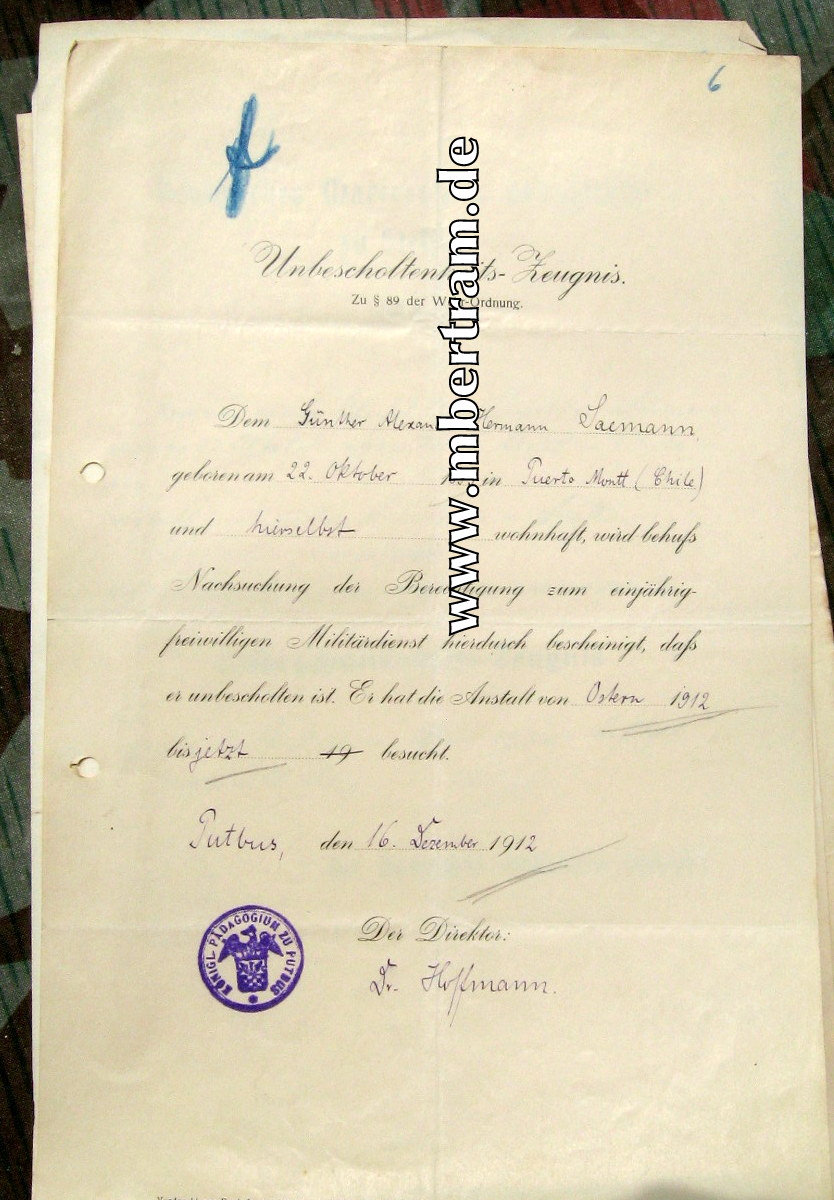 6
Unbescholtenheits-Zeugnis.
Zu § 89 der Wehr-Ordnung.
Dem Günther Alexander Hermann Saemann,
geboren am 22. Oktober in Puerto Montt (Chile)
und hierselbst wohnhaft, wird behufs
Nachsuchung der Berechtigung zum einjährig-
freiwilligen Militärdienst hierdurch bescheinigt, daß
er unbescholten ist. Er hat die Anstalt von Ostern 1912
bis jetzt 19 besucht.
Putbus, den 16. Dezember 1912
Der Direktor:
Dr. Hoffmann.
KÖNIGL. PÄDAGOGIUM ZU PUTBUS
www.mbertram.de